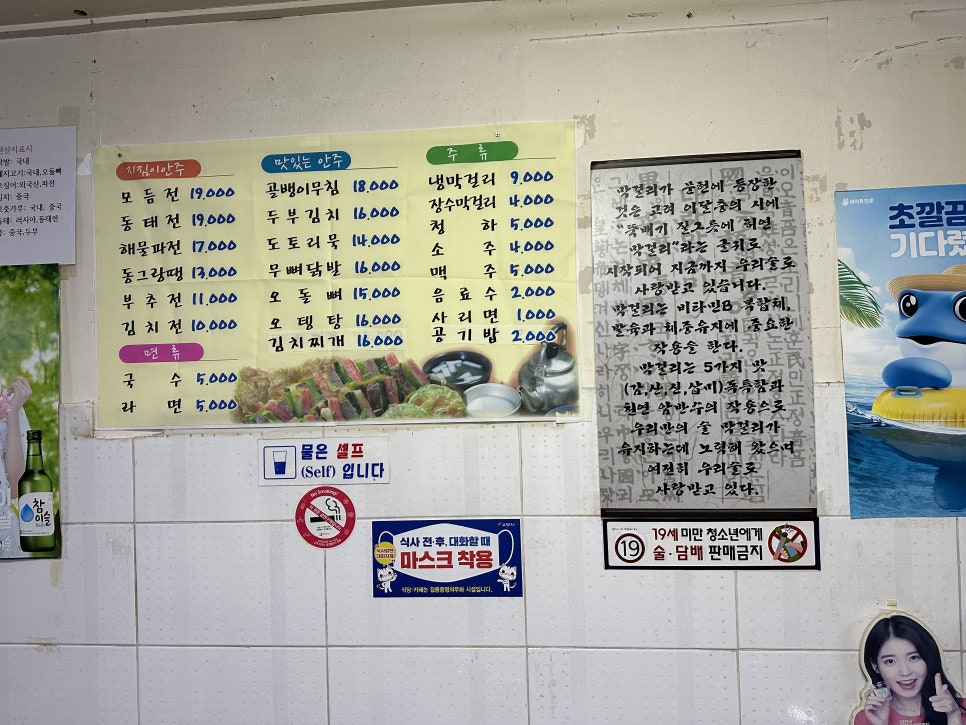 원산지표시
국내
국내,오돌뼈
외국산,파전
중국
국내, 중국
러시아,동태전
중국,두부
지짐이안주
모듬전 19.000
동태전 19.000
해물파전 17.000
동그랑땡 13.000
부추전 11.000
김치전 10.000
면 류
국 수 5.000
라 면 5.000
맛있는 안주
골뱅이무침 18.000
두부김치 16.000
도토리묵 14.000
무뼈닭발 16.000
오돌뼈 15.000
오뎅탕 16.000
김치찌개 16.000
주 류
냉막걸리 9.000
장수막걸리 4.000
청 하 5.000
소 주 4.000
맥 주 5.000
음료수 2.000
사리면 1.000
공기밥 2.000
막걸리가 문헌에 등장한
것은 고려 이달충의 시에
"뚝배기 질그릇에 허연
막걸리"라는 글귀로
시작되어 지금까지 우리술로
사랑받고 있습니다.
막걸리는 비타민B 복합체,
발육과 체중유지에 중요한
작용을 한다.
막걸리는 5가지 맛
(감,산,신,삽미)독특함과
천연 암반수의 작용으로
우리만의 술 막걸리가
유지하는데 노력해 왔으며
여전히 우리술로
사랑받고 있다.
물은 셀프
(Self) 입니다
No Smoking!
식사 전·후, 대화할 때
마스크 착용
식당·카페는 방역의무화 시설입니다.
고양시
19
19세 미만 청소년에게
술·담배 판매금지
하이트진로
초깔끔
기다렸
참이슬